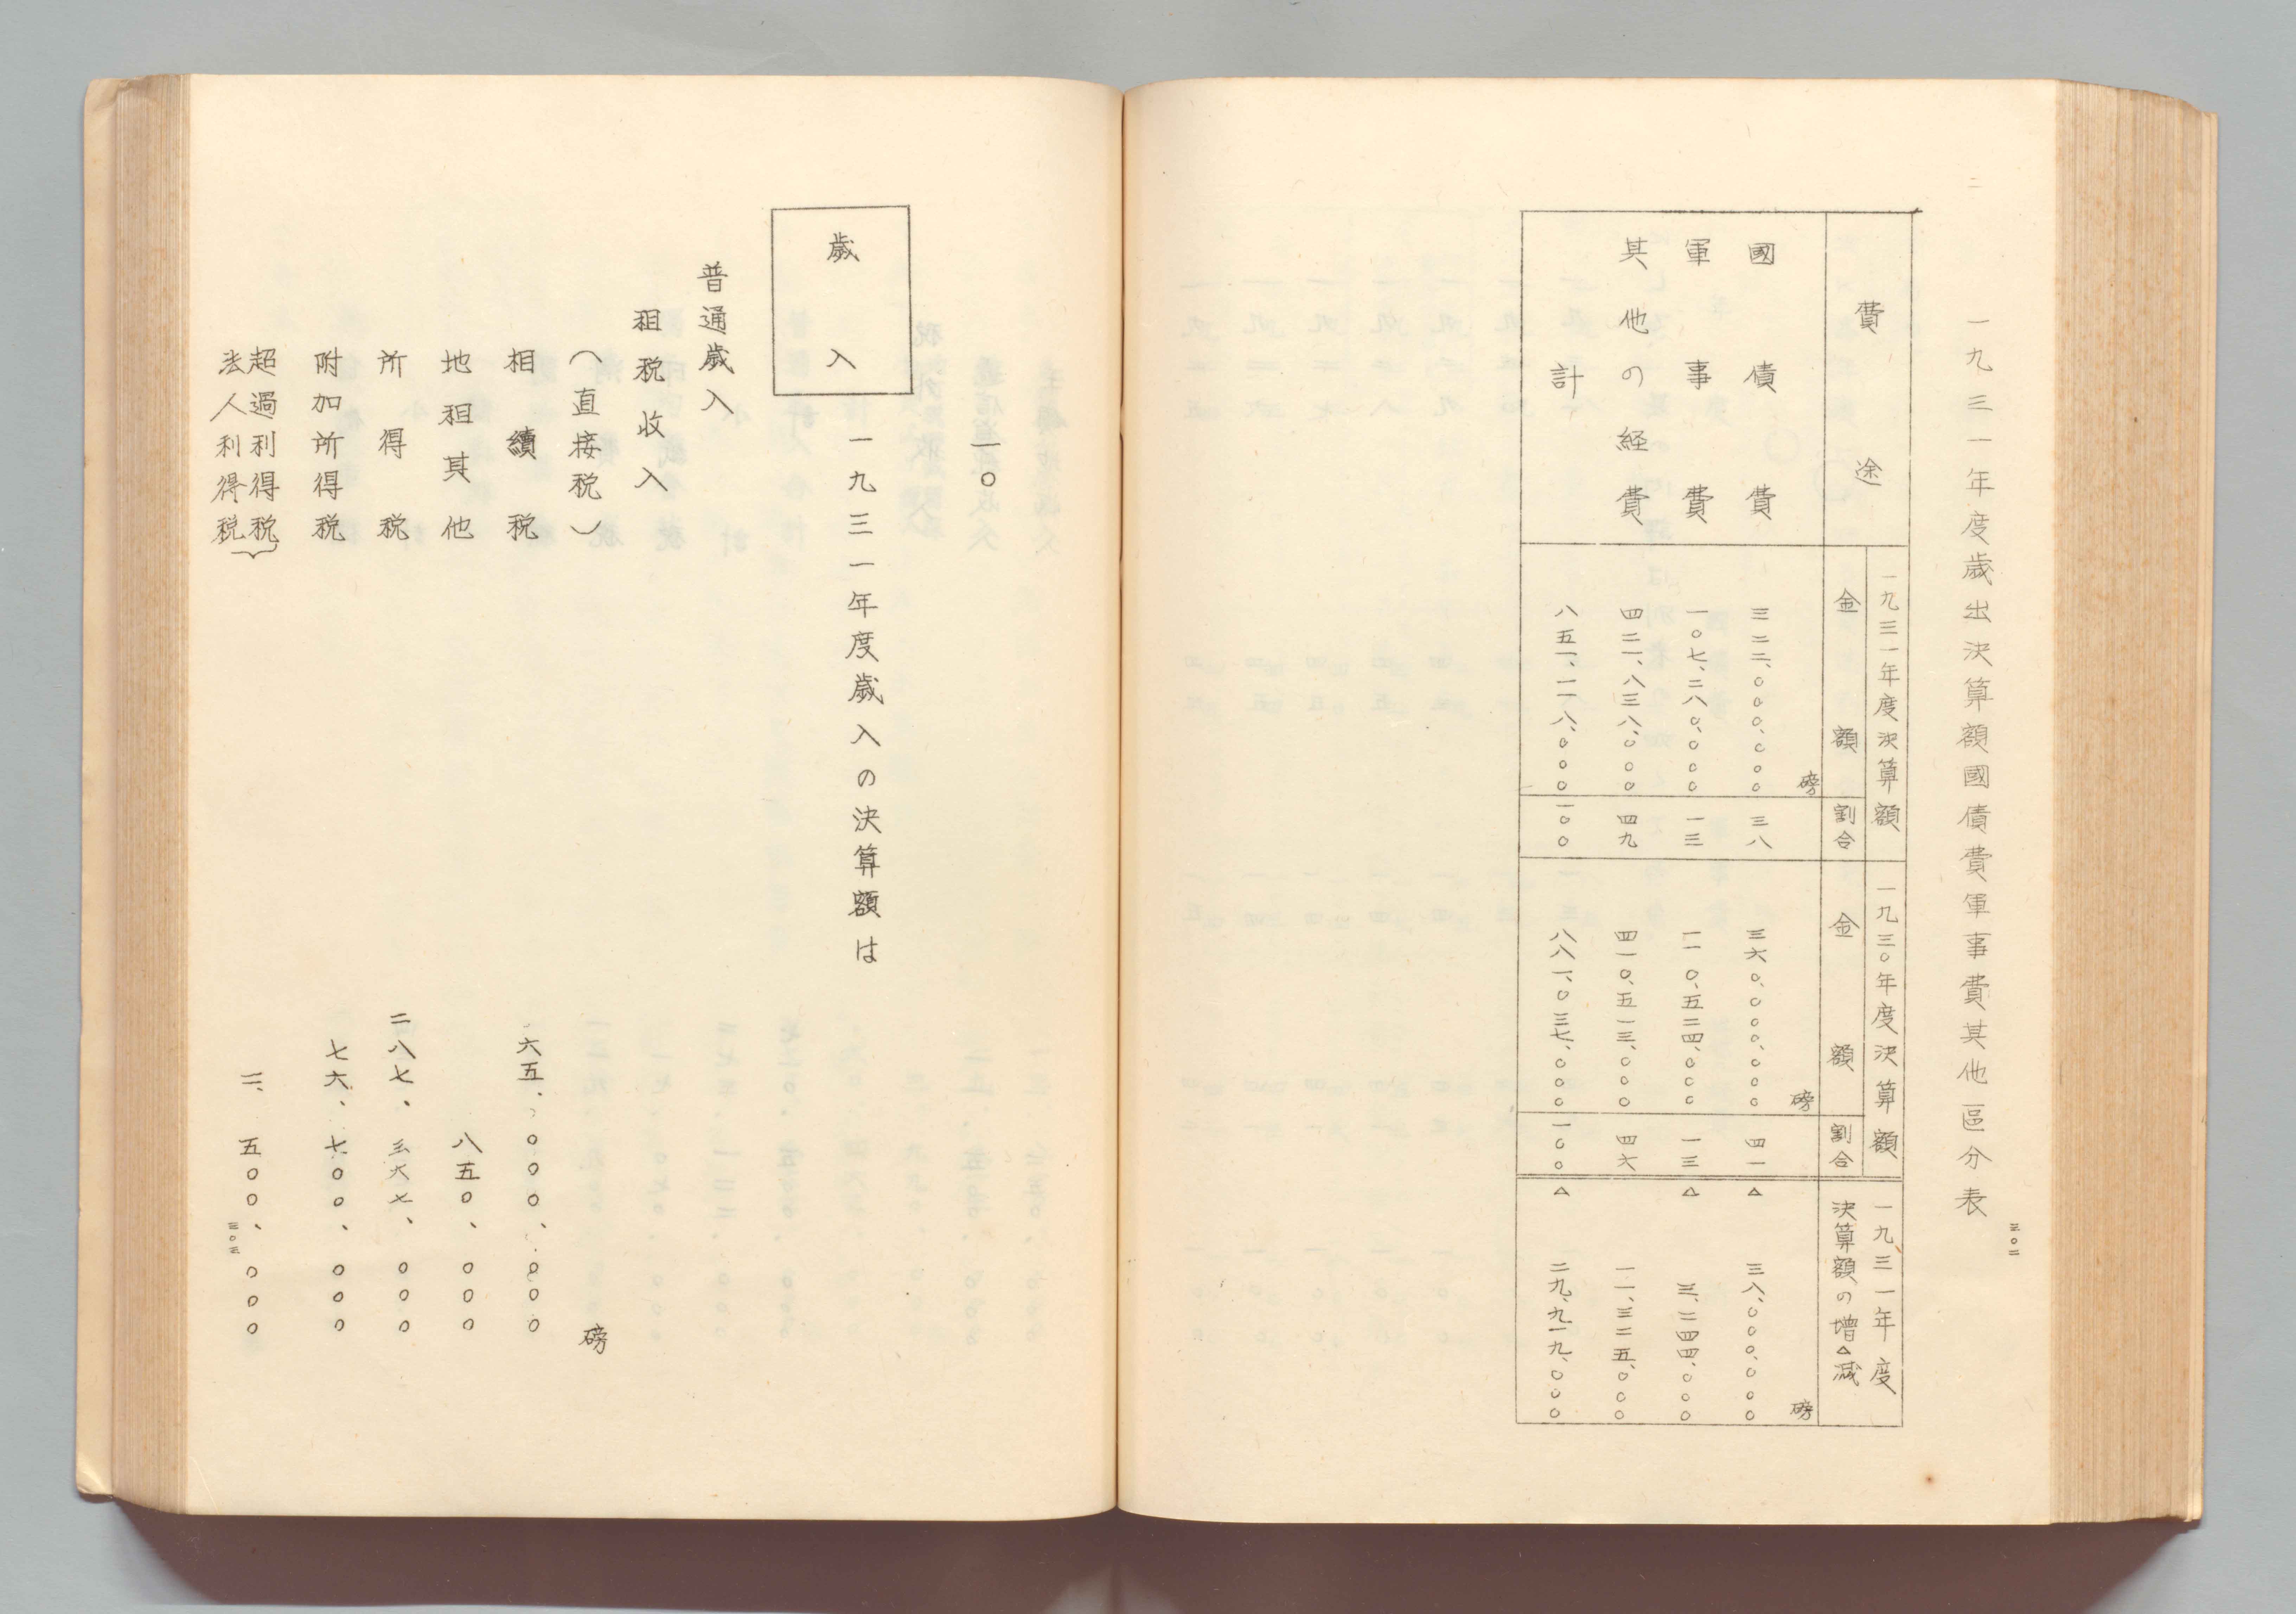 三〇二
一九三一年度歳出決算額國債費軍事費其他區分表
費途
一九三一年度決算額
金額
割合
一九三〇年度決算額
金額
割合
一九三一年度
決算額の増△減
磅 磅 磅
國債費 三二二、〇〇〇、〇〇〇 三八 三六〇、〇〇〇、〇〇〇 四一 △ 三八、〇〇〇、〇〇〇
軍事費 一〇七、二八〇、〇〇〇 一三 一一〇、五二四、〇〇〇 一三 △ 三、二四四、〇〇〇
其他の経費 四二一、八三八、〇〇〇 四九 四一〇、五一三、〇〇〇 四六 一一、三二五、〇〇〇
計 八五一、一一八、〇〇〇 一〇〇 八八一、〇三七、〇〇〇 一〇〇 △ 二九、九一九、〇〇〇
一〇
一九三一年度歳入の決算額は
歳入
普通歳入
租税收入
(直接税) 磅
相續税 六五、〇〇〇、〇〇〇
地租其他 八五〇、〇〇〇
所得税 二八七、三六七、〇〇〇
附加所得税 七六、七〇〇、〇〇〇
超過利得税
法人利得税 二、五〇〇、〇〇〇
三〇三